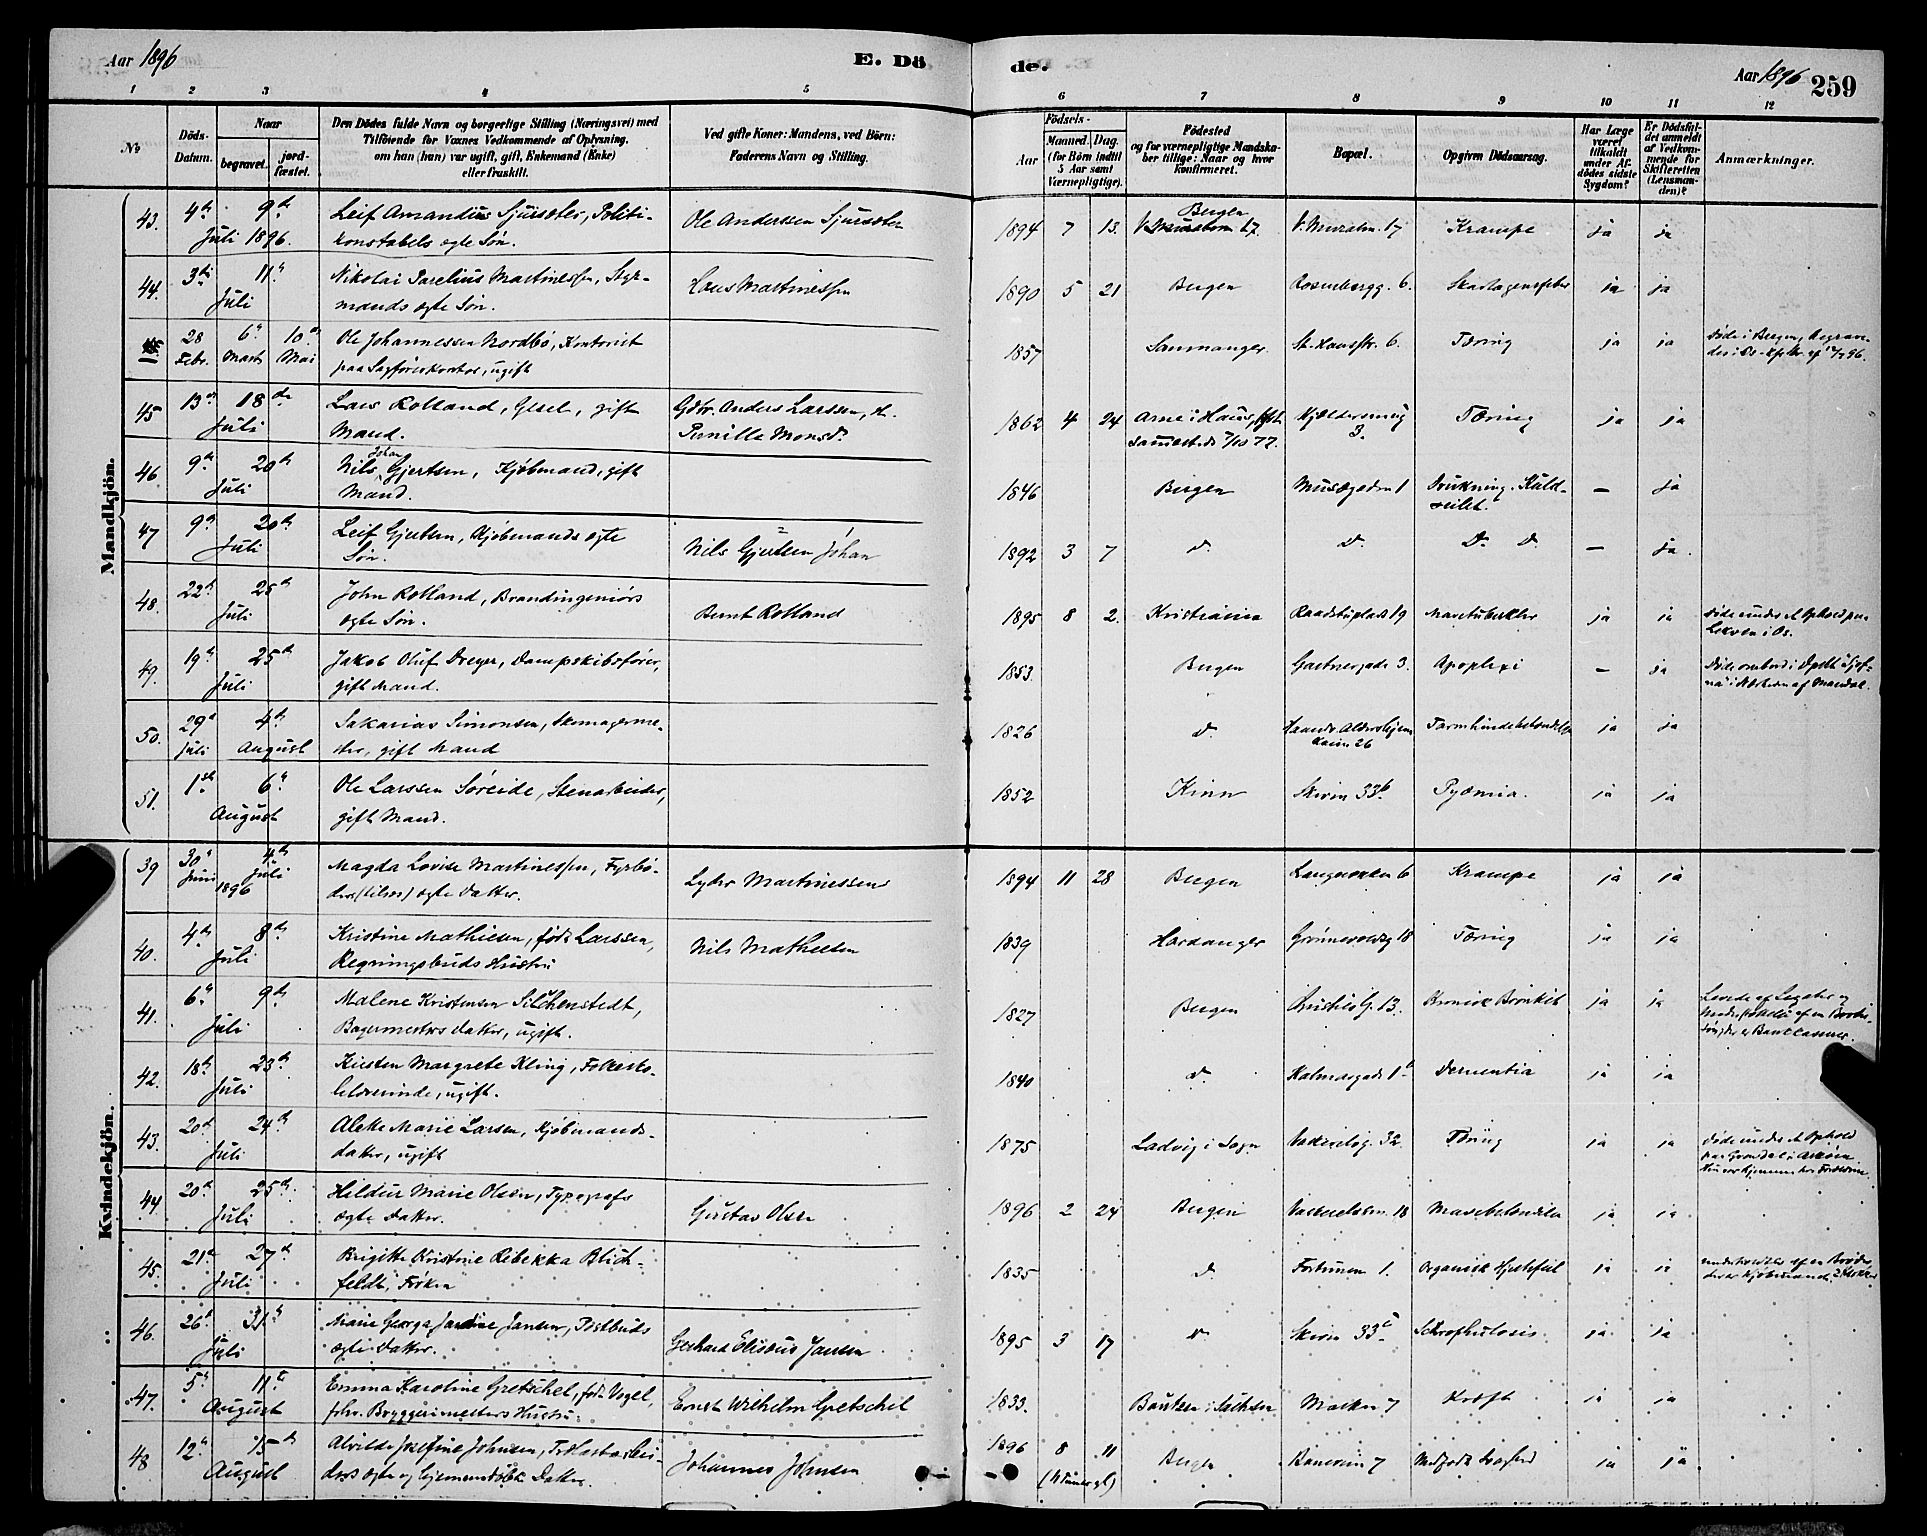 Aar 1896
E. Dö
de.
Aar 1896
259
1 2 3 4 5 6 7 8 9 10 11 12
No
Döds-Datum.
Naar
begravet.
jord-fæstet.
Den Dödes fulde Navn og borgerlige Stilling (Næringsvei) med
Tilföiende for Voxnes Vedkommende af Oplysning,
om han (hun) var ugift, gift, Enkemand (Enke)
eller fraskilt.
Ved gifte Koner: Mandens, ved Börn:
Faderens Navn og Stilling.
Födsels-
Aar
Maaned. Dag.
(for Börn indtil
5 Aar samt
Værnepligtige).
Födested
og for værnepligtige Mandska-
ber tillige: Naar og hvor
konfirmeret.
Bopæl.
Opgiven Dödsaarsag.
Har Læge
været
tilkaldt
under Af-
dödes sidste
Sygdom?
Er Dödsfal-
det anmeldt
af Vedkom-
mende for
Skifteretten
(Lensman-
den)?
Anmærkninger.
Mandkjön.
43. 4de 9de Juli 1896. Leif Amandus Sjursæter, Politi-
konstabels ægte Søn. Ole Anderssen Sjursæter 1894 7 13. Bergen V. Muralm. 17 V. Muralm. 17 Krampe ja ja
44. 3die 11te Juli Nikolai Parelius Martinessen, Styr-
mands ægte Søn. Hans Martinessen 1890 5 21 Bergen Rosenbergg. 6. Skarlagensfeber ja ja
28 Febr. 6te Marts 10de Mai Ole Johannessen Nordbø, Kontorist
paa Sagførerkontor, ugift 1857 Samnanger. St. Hansstr. 6. Tæring ja ja Døde i Bergen, begrav-
45 13de 18de Juli Lars Rolland, Gesel, gift
Mand. Gdbr. Anders Larssen, H.
Pernille Monsdr. 1862 4 24 Arne i Haus, kft.
sammesteds 7/10 77. Kjellersmug
3. Tæring ja ja
46 9de 20de Juli Nils Johan Gjertsen, Kjøbmand, gift
Mand. 1846 Bergen Musægaden 1 Drukning. Kuld-
seilet. — ja
47 9de 20de Juli Leif Gjertsen, Kjøbmands ægte
Søn. Nils Gjertsen Johan 1892 3 7 do. do. do. do. — ja
48. 22de 25de Juli John Rolland, Brandingeniørs
ægte Søn. Bernt Rolland 1895 8 2. Kristiania Raadstuplads 19 Mavetuberkler ja ja Døde under et Ophold paa
Lekven i Os.
49. 19de 25de Juli Jakob Oluf Dreyer, Dampskibsfører,
gift Mand. 1853 Bergen Gartnergade 3. Apoplexi — ja Døde ombord i
50. 29de Juli 4de August Sakarias Simonsen, Skomagerme-
ster, gift Mand 1826 do. Haandv. Aldershjem
Kaien 26 Tarmhindebetændelse ja ja
51. 1ste 6te August Ole Larssen Søreide, Stenarbeider,
gift Mand. 1852 Kinn Skiven 33b Pyæmia. ja ja
Kvindekjön.
39 30te Juni 1896 4de Juli Magda Lovise Martinessen, Fyrbø-
ders ægte Datter. Lyder Martinessen 1894 11 28 Bergen Langevekken 6 Krampe ja ja
40. 4de 8de Juli Kristine Mathiesen, født Larssen,
Regningsbuds Hustru Nils Mathiesen 1839 Hardanger Grønnevoldsg 18 Tæring ja ja
41. 6te 9de Juli Malene Kristensen Silchenstedt,
Bagermesters Datter, ugift. 1827 Bergen Christiesg. 13. Kronisk Bronkit ja ja Levede af Legater og
42. 18de 23de Juli Kirsten Margrete Kling, Folkesko-
lelærerinde, ugift. 1840 do. Kalmargade 1b Dementia ja ja
43. 20de 24de Juli Aleke Marie Larsen, Kjøbmands-
datter, ugift 1875 Ladvig i Sogn 32 Tæring ja ja Døde under et Ophold
44 20de 25de Juli Hildur Marie Olsen, Typografs
ægte Datter. Gustav Olsen 1896 2 24 Bergen 18 Mavebetændelse ja ja
45. 21de 27de Juli Brigitte Kristine Rebekka Blich-
feldt, "Frøken" 1835 do. Fortunen 1. Organisk Hjertefeil ja ja
46. 26de 31te Juli Marie Georga Jansen, Postbuds
ægte Datter. Gerhard Elisæus Jansen 1895 3 17 do. Skiven 33c Schrophulosis. ja ja
47. 5te 11te August Emma Karoline Gretschel, født Vogel,
fhv. Bryggerimesters Hustru. Ernst Wilhelm Gretschel 1833. Bautzen i Sachsen Marken 7 Kræft ja ja
48 12te 15de August Alvilde Josefine Johnsen,
ders ægte og hjemmedøbt Datter. Johannes Johnsen 1896 8 11
(4 Timer gl) Bergen Baneveien 7 Medfødt Svaghed ja ja